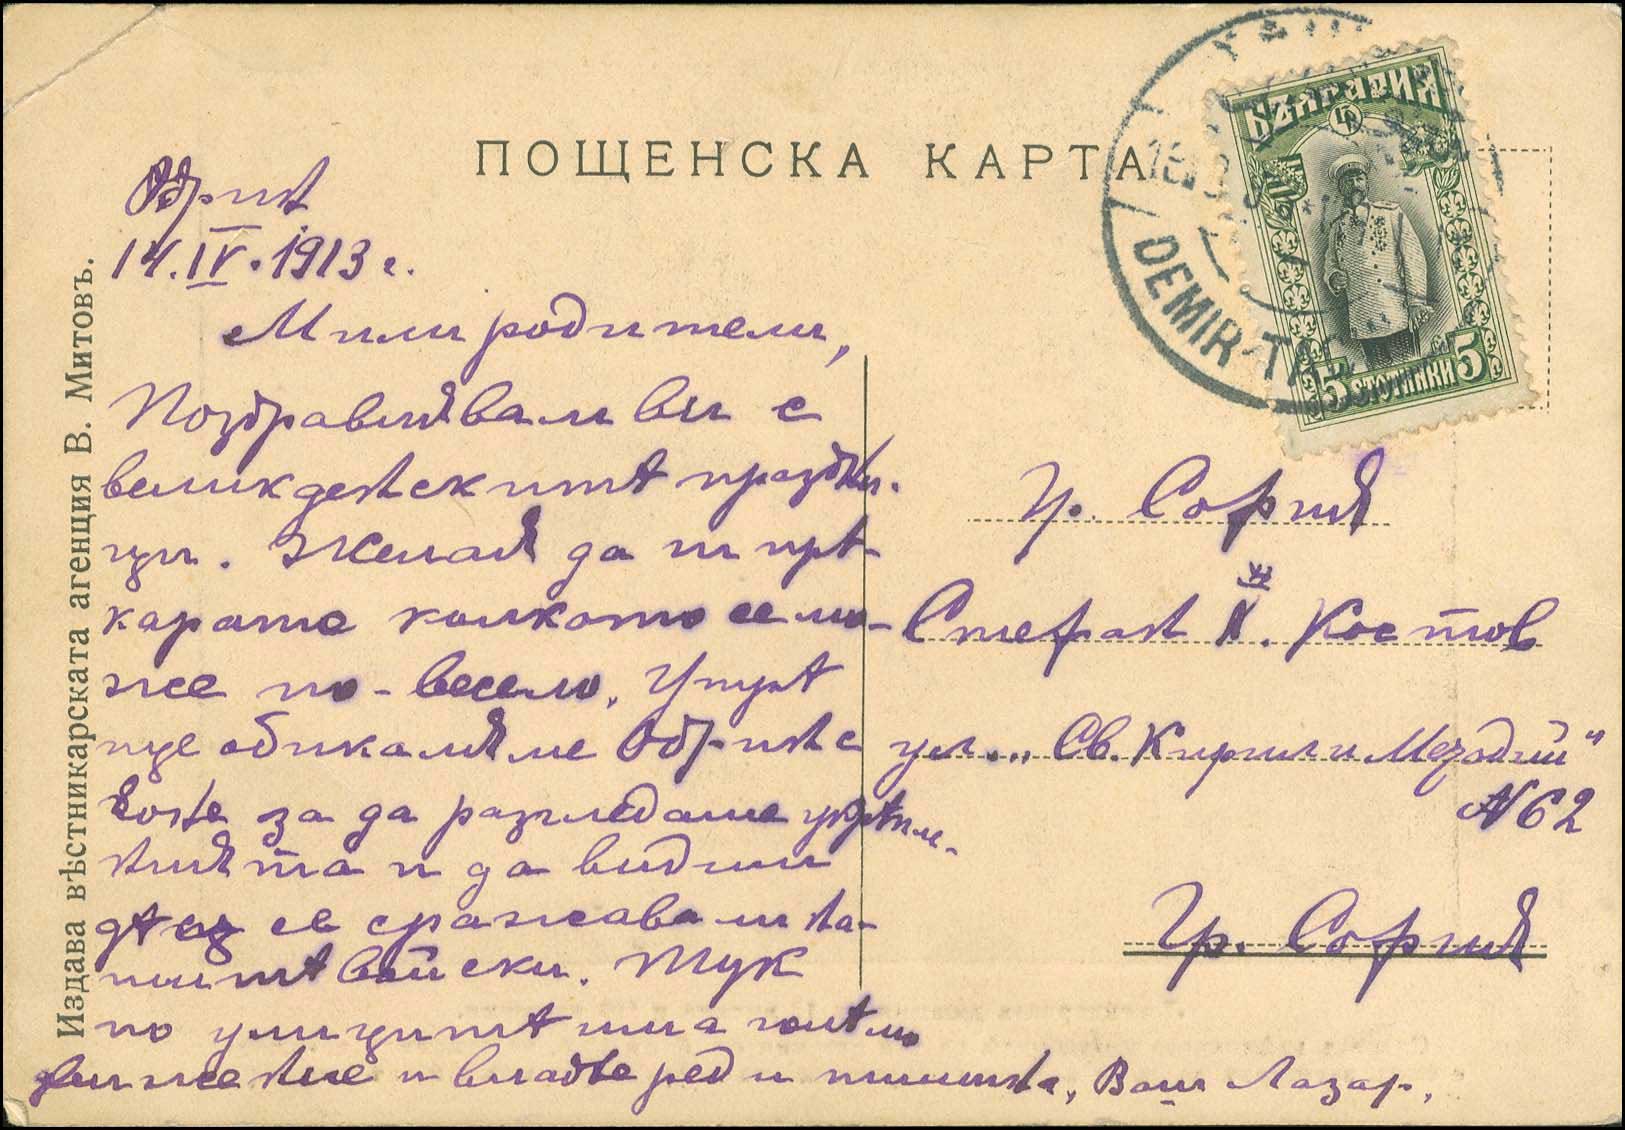 ПОЩЕНСКА КАРТА
Одринъ
14.IV.1913 г.
Мили родители,
Поздравлявам ви с
великденскитѣ праздни-
ци. Желая да ги прѣ-
карате колкото се мо-
же по-весело. Утрѣ
ще обикаляме Одрин с
коне за да разгледаме укрѣпле-
нията и да видим
дѣ са се сражавали на-
шитѣ войски. Тук
по улицитѣ има голѣмо
движение и владѣе ред и тишина, Ваш Лазар.
БЪЛГАРИЯ
5 СТОТИНКИ 5
DEMIR-TA
Гр. София
Стефан Н. Костов
ул. „Св. Кирил и Методий"
N 62
Гр. София
Издава вѣстникарската агенция В. Митовъ.